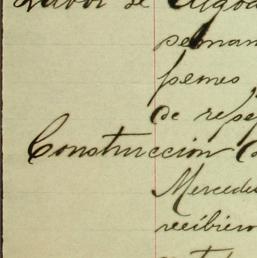 Labor de Algod
seman
pemes
de repe
Construccion Co
Mercedes
recibiero